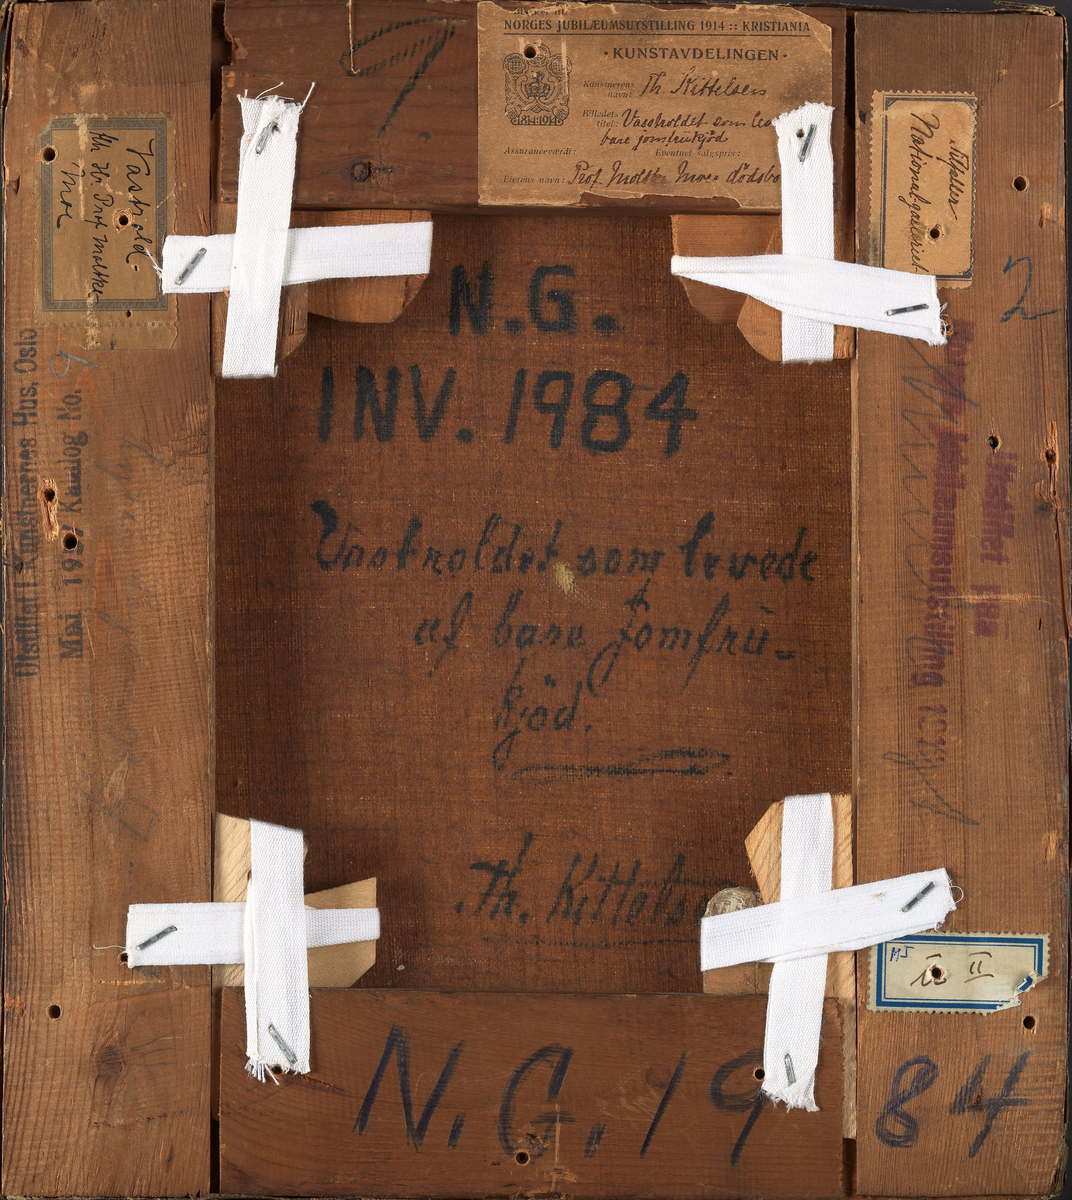 NORGES JUBILÆUMSUTSTILLING 1914 :: KRISTIANIA
· KUNSTAVDELINGEN ·
Kunstnerens navn: Th. Kittelsen
Billedets titel: Vastroldet som
bare jomfrukjød
Assuranceværdi: Eventuel salgspris:
Eierens navn: Prof. Moltke Moes dødsbo
1814-1914
7.
Vastrold-
Prof Moltke
Moe
Tilhører
Nationalgalleriet
2
N.G.
INV. 1984
Vastroldet som levede
af bare jomfru-
kjød.
Th. Kittels
Utstillet i Kunstnernes Hus, Oslo
Mai 19 Katalog No. 9
Utstillet paa
utstilling
MJ
II
N.G. 1984